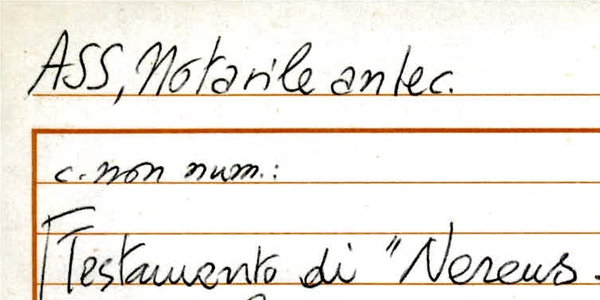 ASS, Notarile antec.
c. non num.:
Testamento di "Nereus.